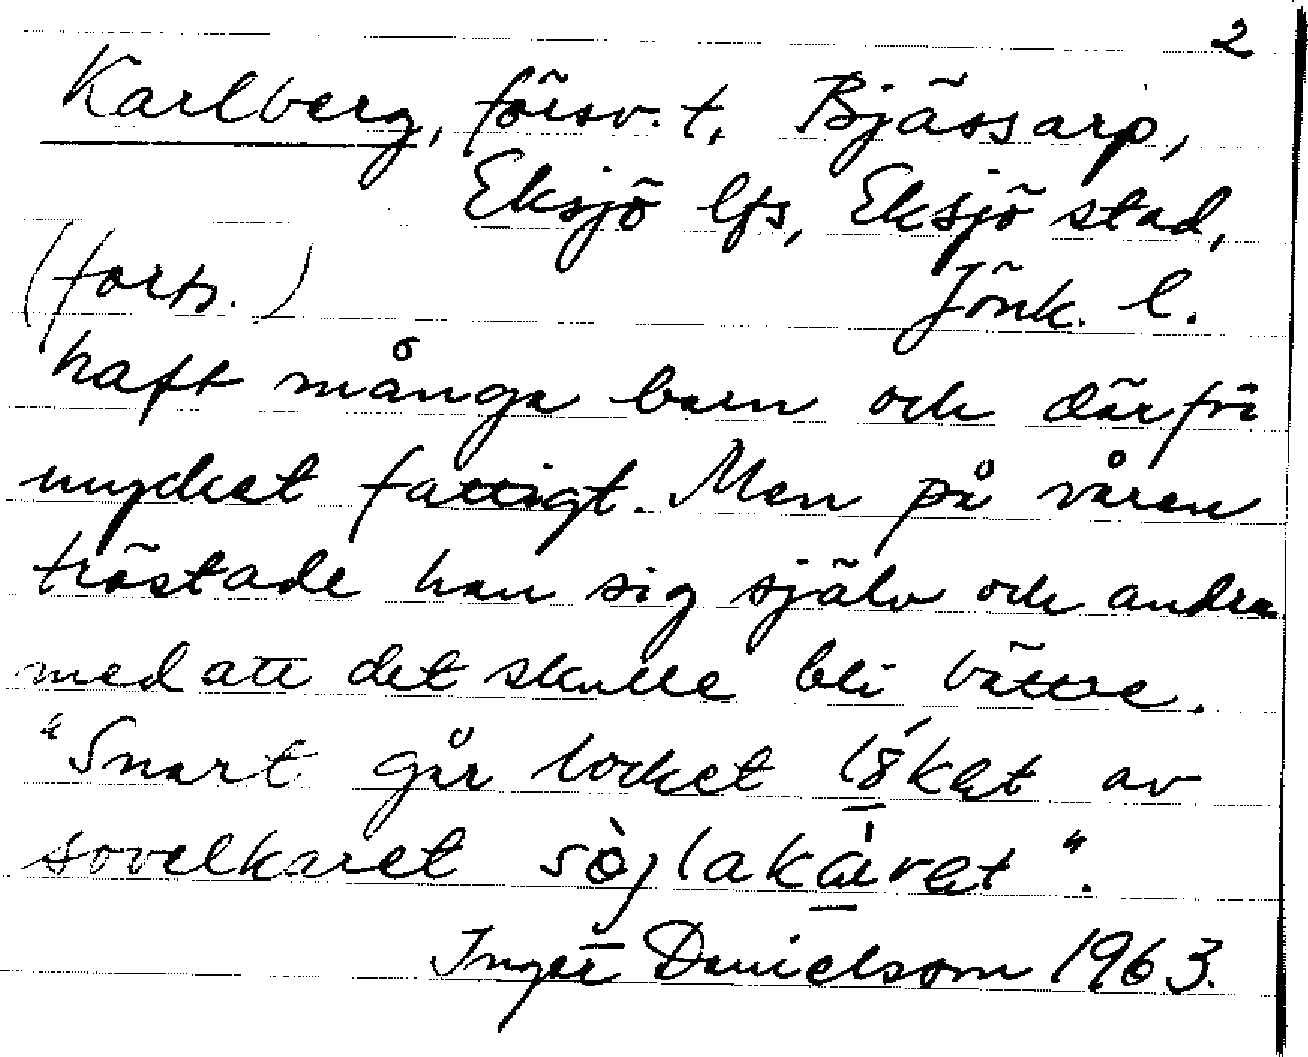 2
Karlberg, försv. t. Bjässarp,
Eksjö lfs, Eksjö stad,
(forts.) Jönk. l.
haft många barn och därför
mycket fattigt. Men på våren
tröstade han sig själv och andra
med att det skulle bli bättre.
"Snart går locket av
sovelkaret".
Inger Danielsson 1963.